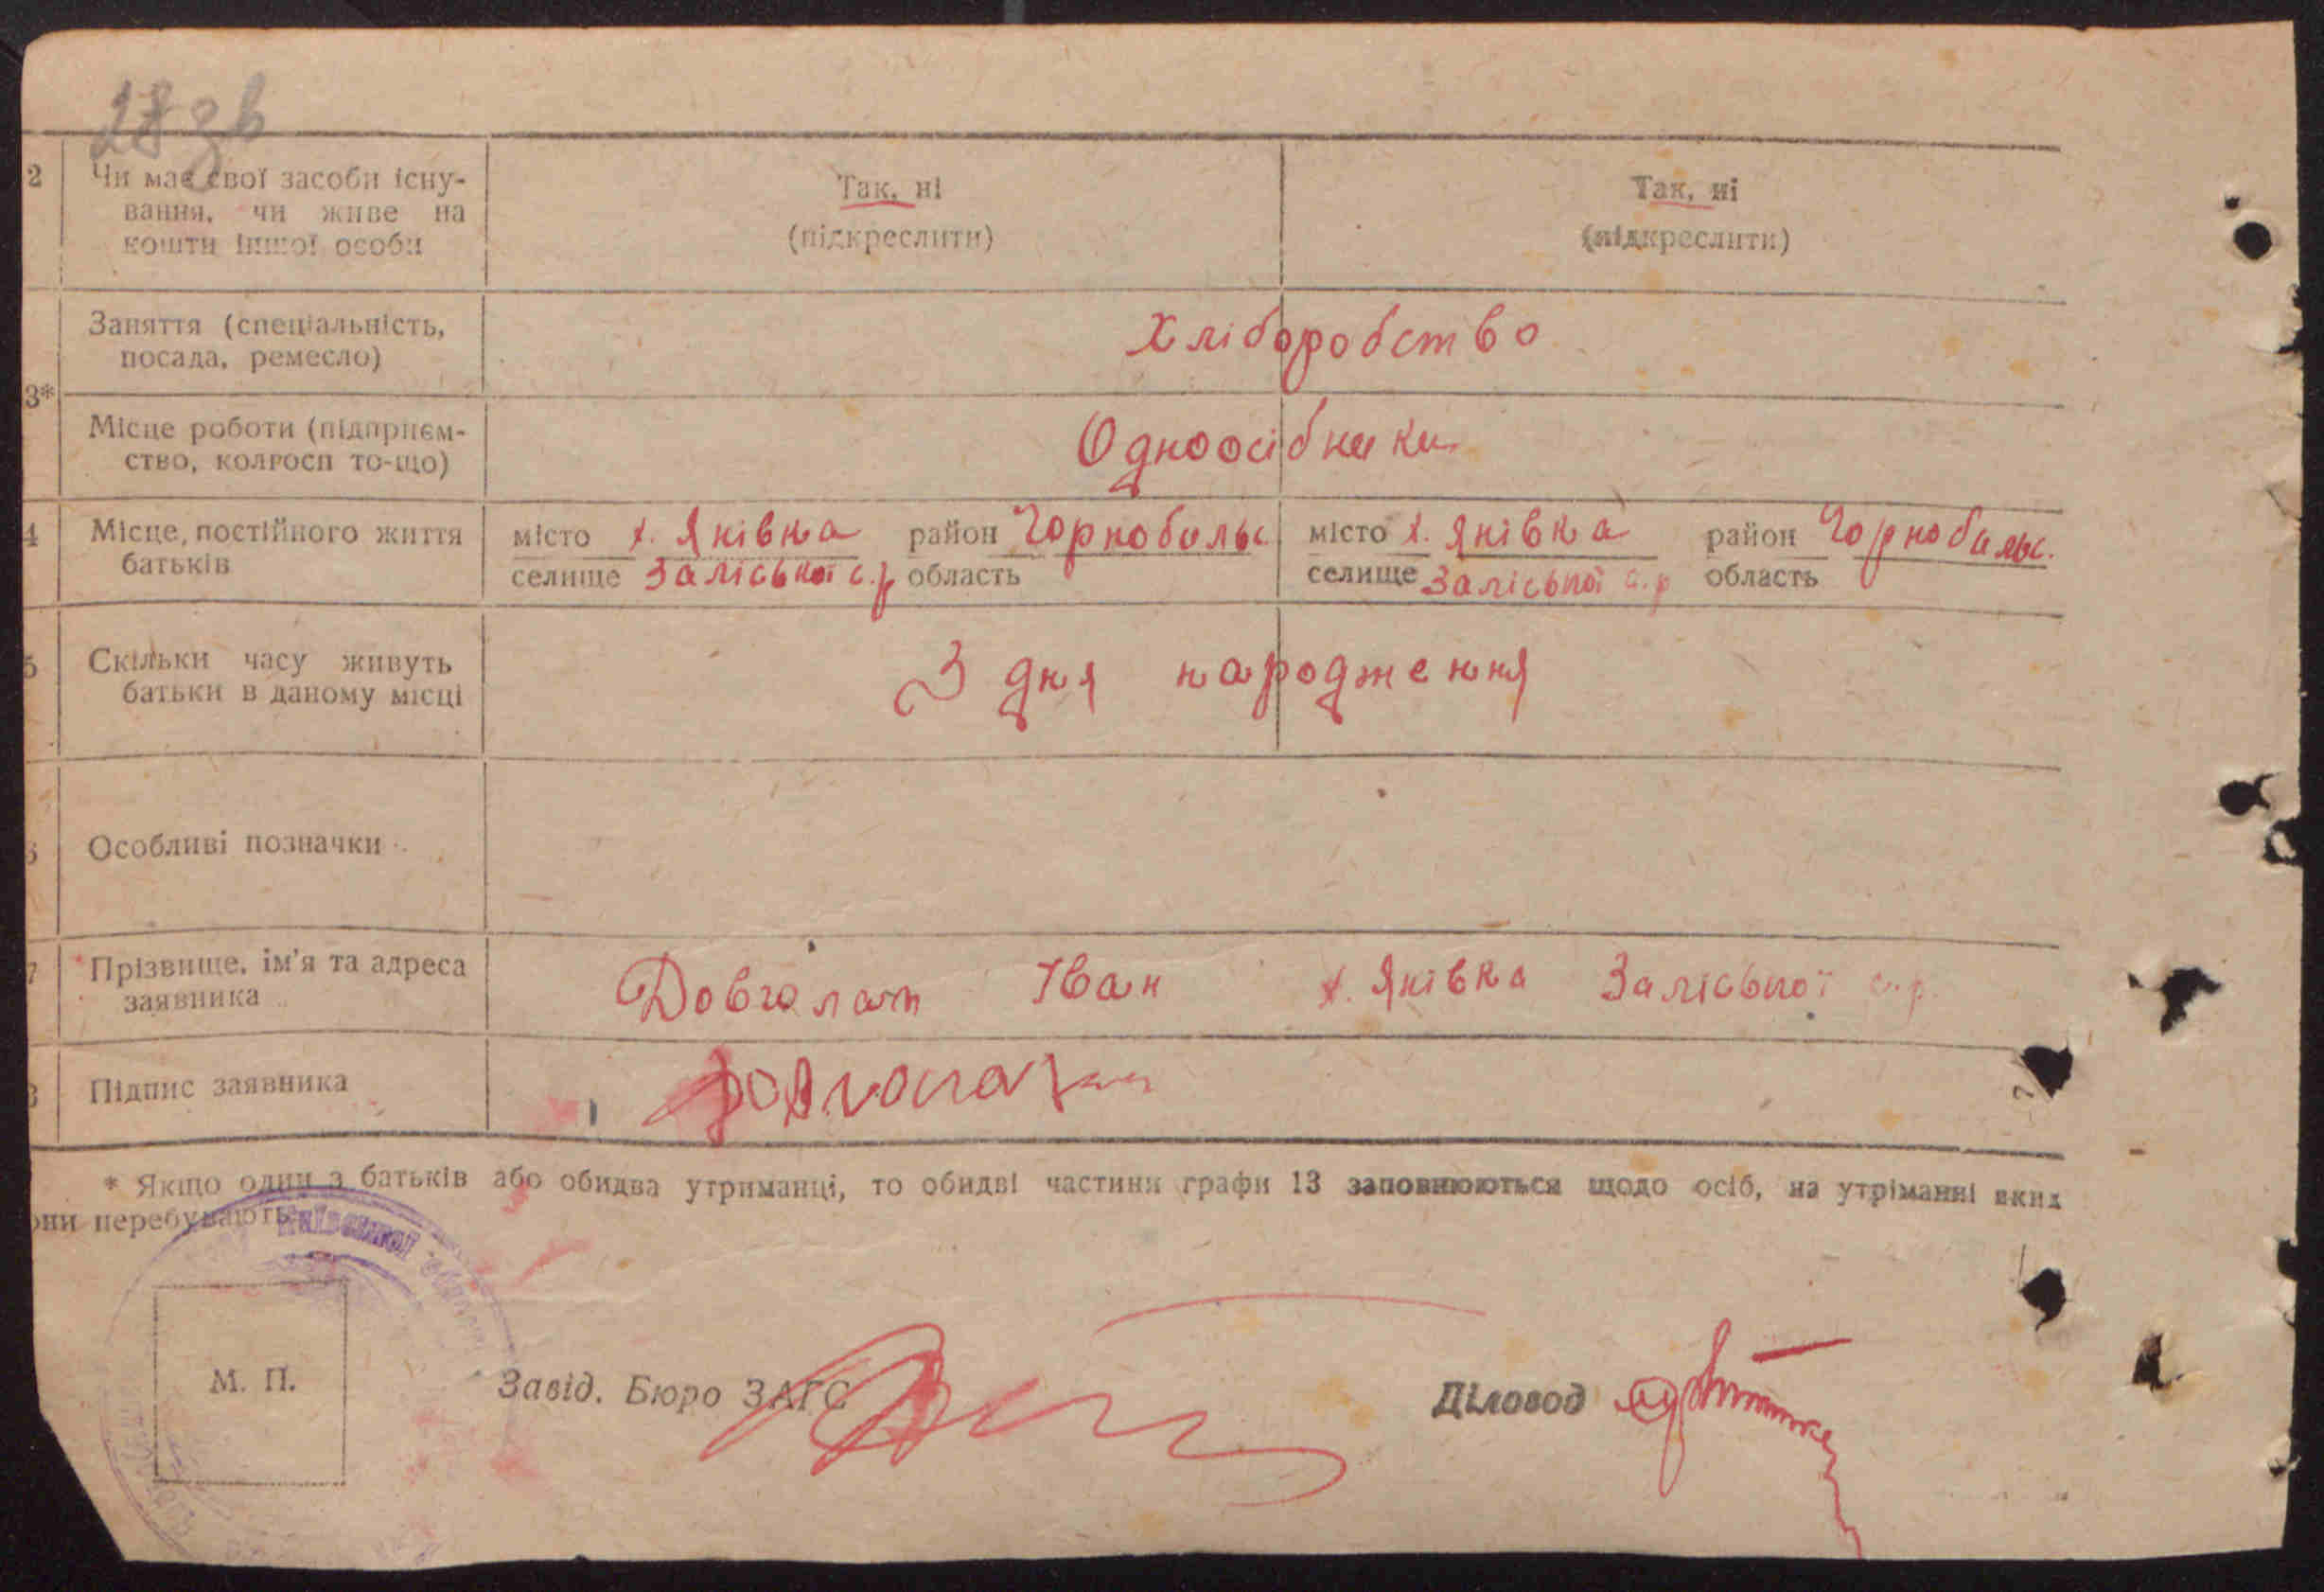 28 зв
2 Чи має свої засоби існу-
вання, чи живе на
кошти іншої особи
Так, ні
(підкреслити)
Так, ні
(підкреслити)
Заняття (спеціальність,
посада, ремесло)
Хліборобство
3*
Місце роботи (підприєм-
ство, колгосп то-що)
Одноосібники
4 Місце, постійного життя
батьків
місто х. Яківка район Чорнобильс.
селище Заліської с.р область
місто х. Яківка район Чорнобильс.
селище Заліської с.р область
5 Скільки часу живуть
батьки в даному місці
З дня народження
6 Особливі позначки
7 Прізвище, ім'я та адреса
заявника
Довгопат Іван х. Яківка Заліської с.р.
Підпис заявника
* Якщо один з батьків або обидва утриманці, то обидві частини графи 13 заповнюються щодо осіб, на утріманні яких
они перебувають.
Київської
М. П.
Завід. Бюро ЗАГС
Діловод